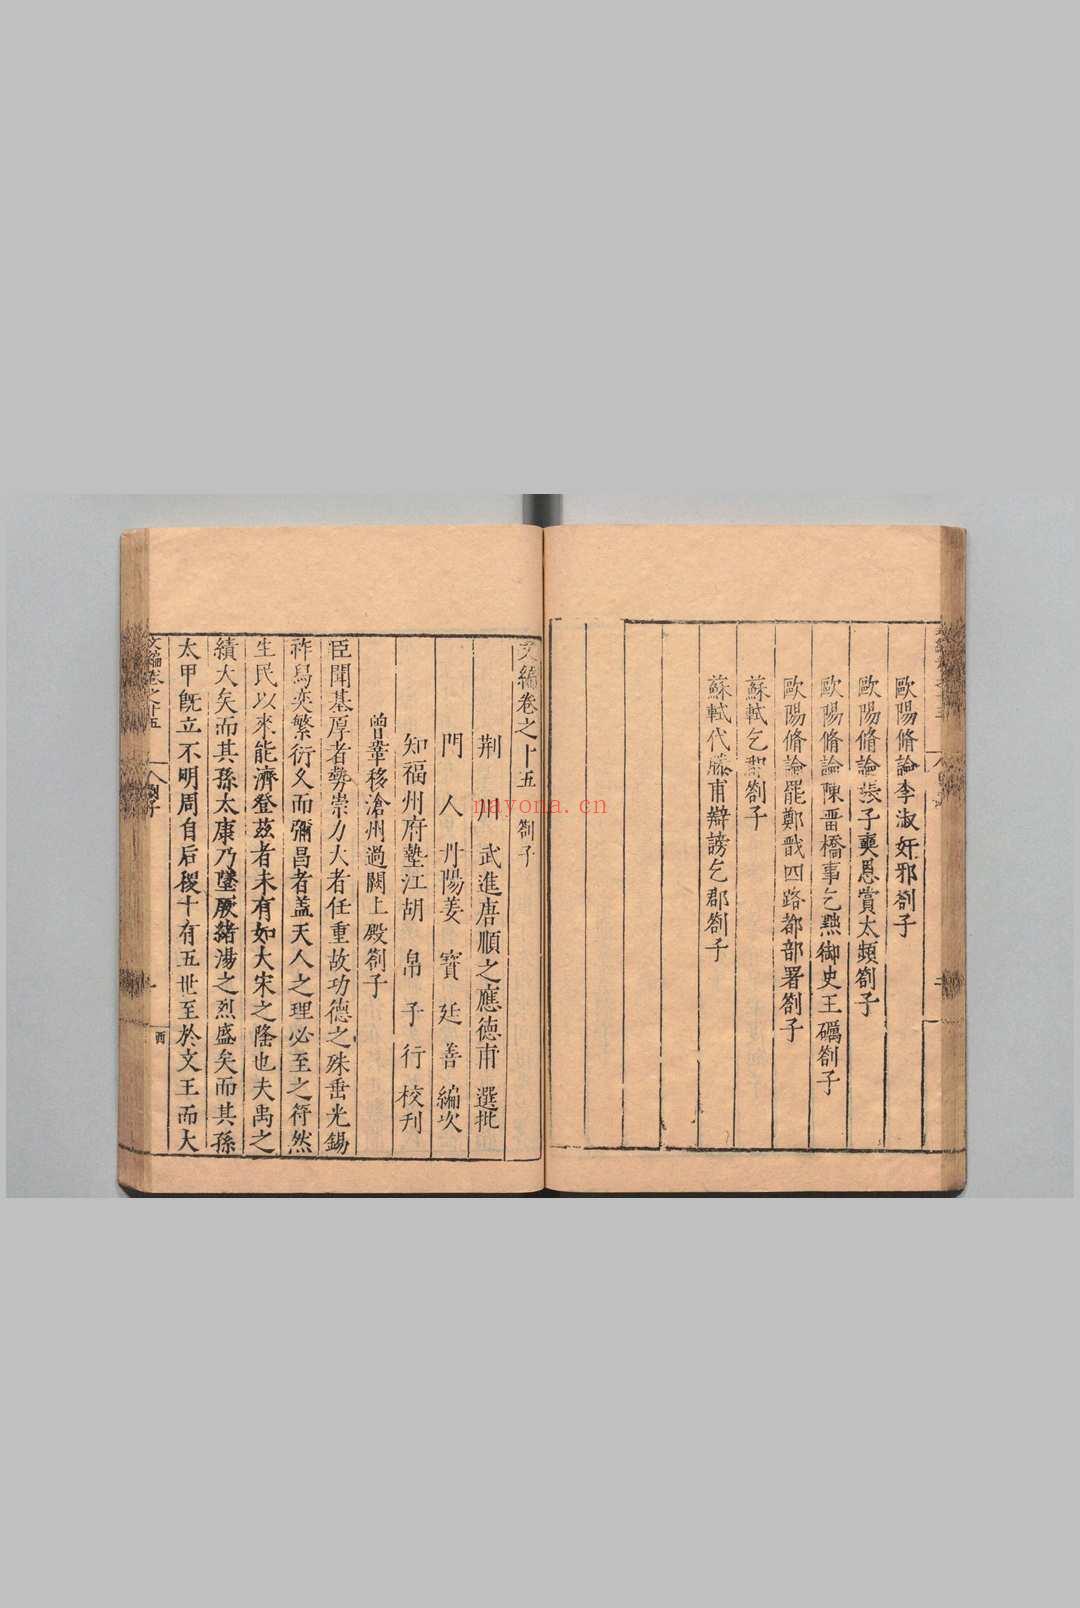 歐陽脩論李淑奸邪劄子
歐陽脩論張子奭恩賞太頻劄子
歐陽脩論陳畱橋事乞黜御史王礪劄子
歐陽脩論罷鄭戩四路都部署劄子
蘇軾乞郡劄子
蘇軾代滕甫辯謗乞郡劄子
文編卷之十五 劄子
荆川武進唐順之應德甫選批
門人丹陽姜寶廷善編次
知福州府墊江胡帛子行校刊
曾鞏移滄州過闕上殿劄子
臣聞基厚者勢崇力大者任重故功德之殊垂光錫
祚舄奕繁衍久而彌昌者盖天人之理必至之符然
生民以來能濟登茲者未有如大宋之隆也夫禹之
績大矣而其孫太康乃墜厥緒湯之烈盛矣而其孫
太甲旣立不明周自后稷十有五世至於文王而大
文編卷之十五
劄子
一
西
nayona.cn